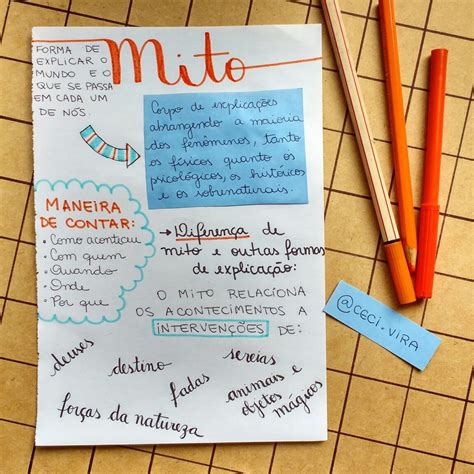 FORMA DE
EXPLICAR O
MUNDO E O
QUE SE PASSA
EM CADA UM
DE NÓS.
Mito
Corpo de explicações
abrangendo a maioria
dos fenômenos, tanto
os físicos quanto os
psicológicos, os históricos
e os sobrenaturais.
MANEIRA
DE CONTAR:
• Como aconteceu
• Com quem
• Quando
• Onde
• Por que
→ Diferença de
mito e outras formas
de explicação:
O MITO RELACIONA
OS ACONTECIMENTOS A
INTERVENÇÕES DE:
deuses
destino
sereias
fadas
animais e
objetos mágicos
forças da natureza
@CECI.VIRA